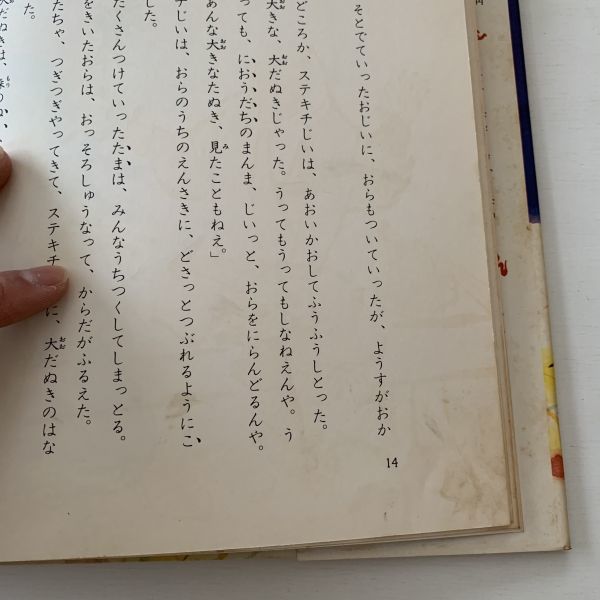 そとでていったおじいに、おらもついていったが、ようすがおか
どころか、ステキチじいは、あおいかおしてふうふうしとった。
大きな、大だぬきじゃった。うってもうってもしなねえんや。う
っても、におうだちのまんま、じいっと、おらをにらんどるんや。
あんな大きなたぬき、見たこともねえ。」
チじいは、おらのうちのえんさきに、どさっとつぶれるようにこ
した。
たくさんつけていったたまは、みんなうちつくしてしまっとる。
をきいたおらは、おっそろしゅうなって、からだがふるえた。
たちゃ、つぎつぎやってきて、ステキチ
に、大だぬきのはな
た。
大だぬきは、
14